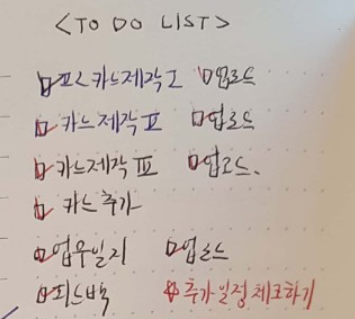 <TO DO LIST>
카드제작 I 업로드
카드제작 II 업로드
카드제작 III 업로드.
카드 추가
업무일지 업로드
피드백 추가일정체크하기